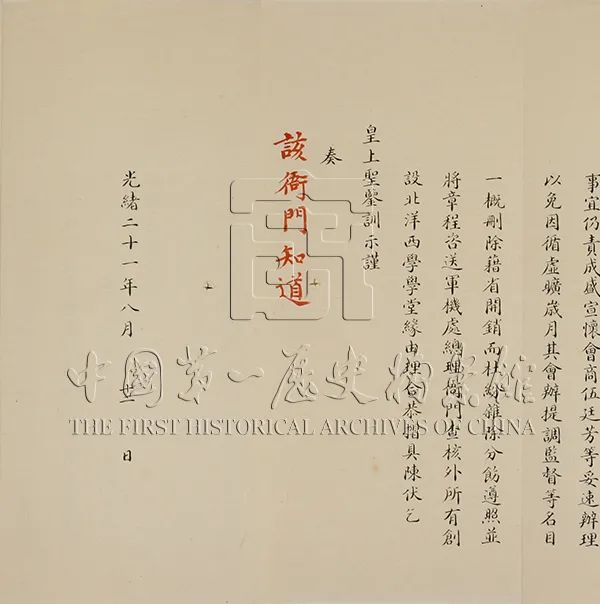 事宜仍責成盛宣懷會商伍廷芳等妥速辦理
以免因循虛曠歲月其會辦提調監督等名目
一概刪除藉省開銷而杜紛雜除分飭遵照並
將章程咨送軍機處總理衙門查核外所有創
設北洋西學學堂緣由理合恭摺具陳伏乞
皇上聖鑒訓示謹
奏
該衙門知道
光緒二十一年八月 日
中國第一歷史檔案館
THE FIRST HISTORICAL ARCHIVES OF CHINA